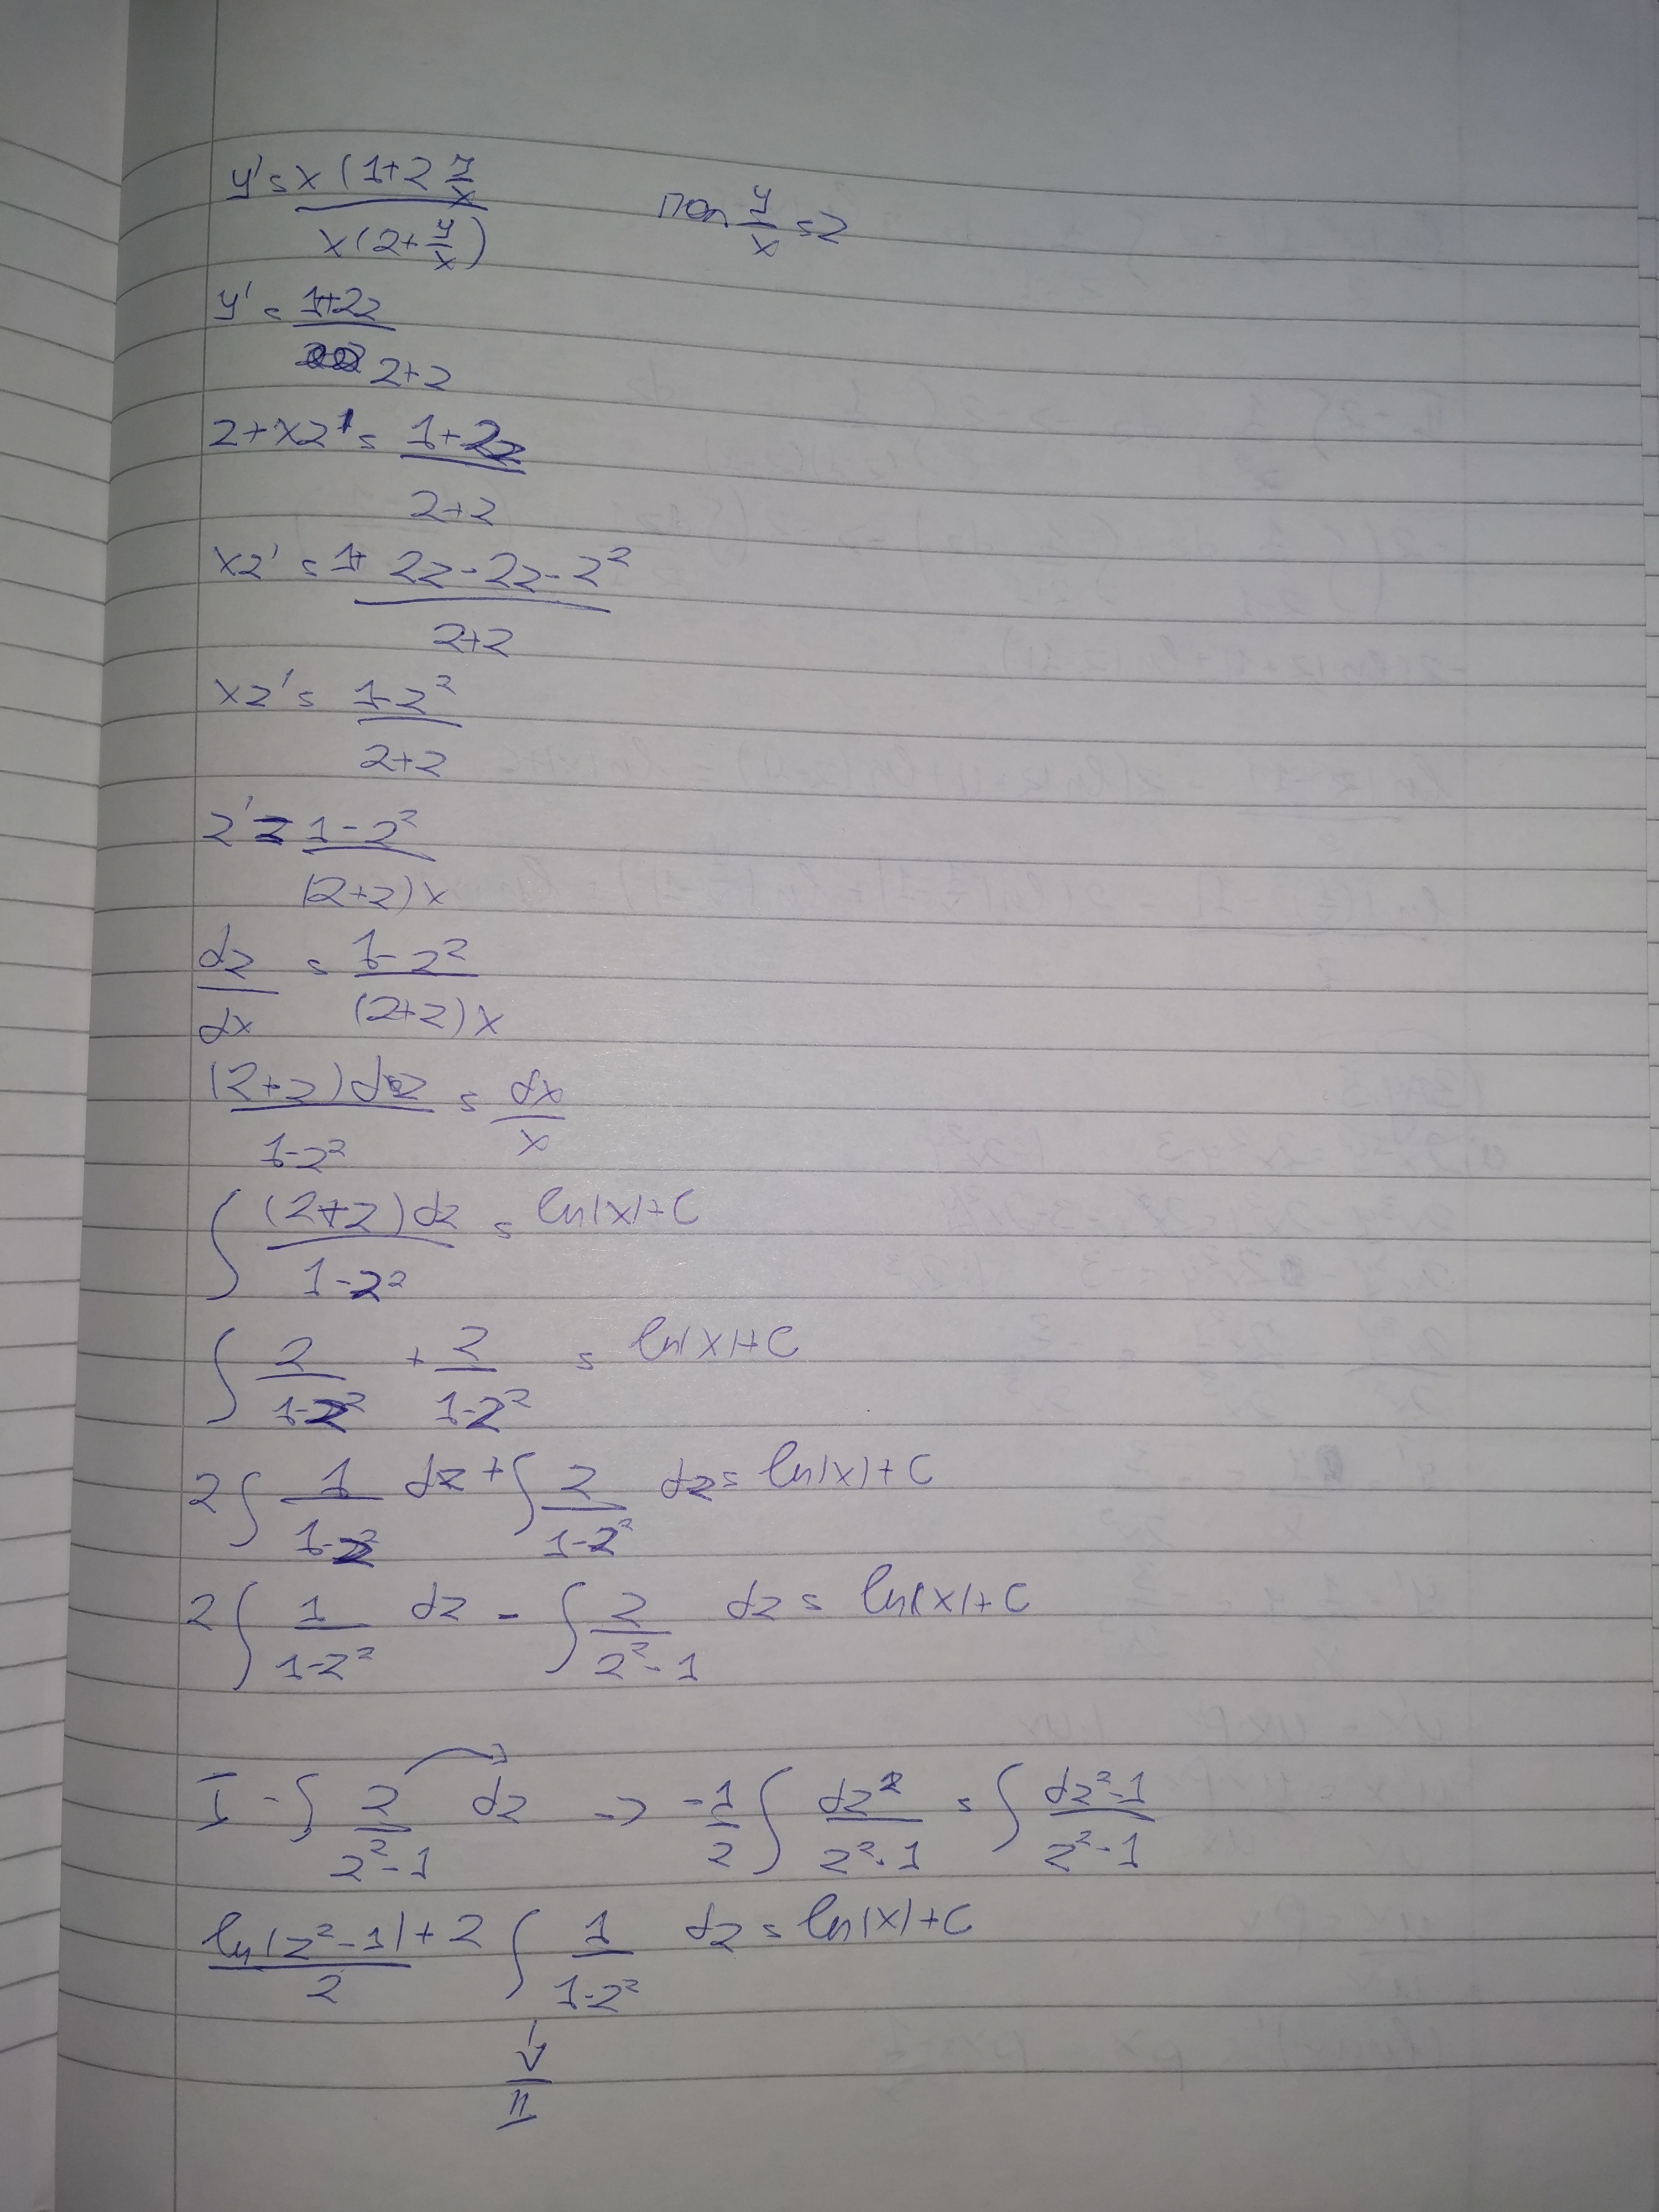 y' = x(1+2 y/x / x(2+y/x) пол y/x = z
y' = 1+2z / 2+z
z+xz' = 1+2z / 2+z
xz' = 1+2z-2z-z² / 2+z
xz' = 1-z² / 2+z
z' = 1-z² / (2+z)x
dz/dx = 1-z² / (2+z)x
(2+z)dz / 1-z² = dx/x
∫ (2+z)dz / 1-z² = ln|x|+C
∫ 2/1-z² + z/1-z² = ln|x|+C
2∫ 1/1-z² dz + ∫ z/1-z² dz = ln|x|+C
2∫ 1/1-z² dz - ∫ z/z²-1 dz = ln|x|+C
I -∫ z/z²-1 dz => -1/2 ∫ dz²/z²-1 = ∫ dz²-1/z²-1
ln|z²-1|/2 + 2∫ 1/1-z² dz = ln|x|+C
↓
II